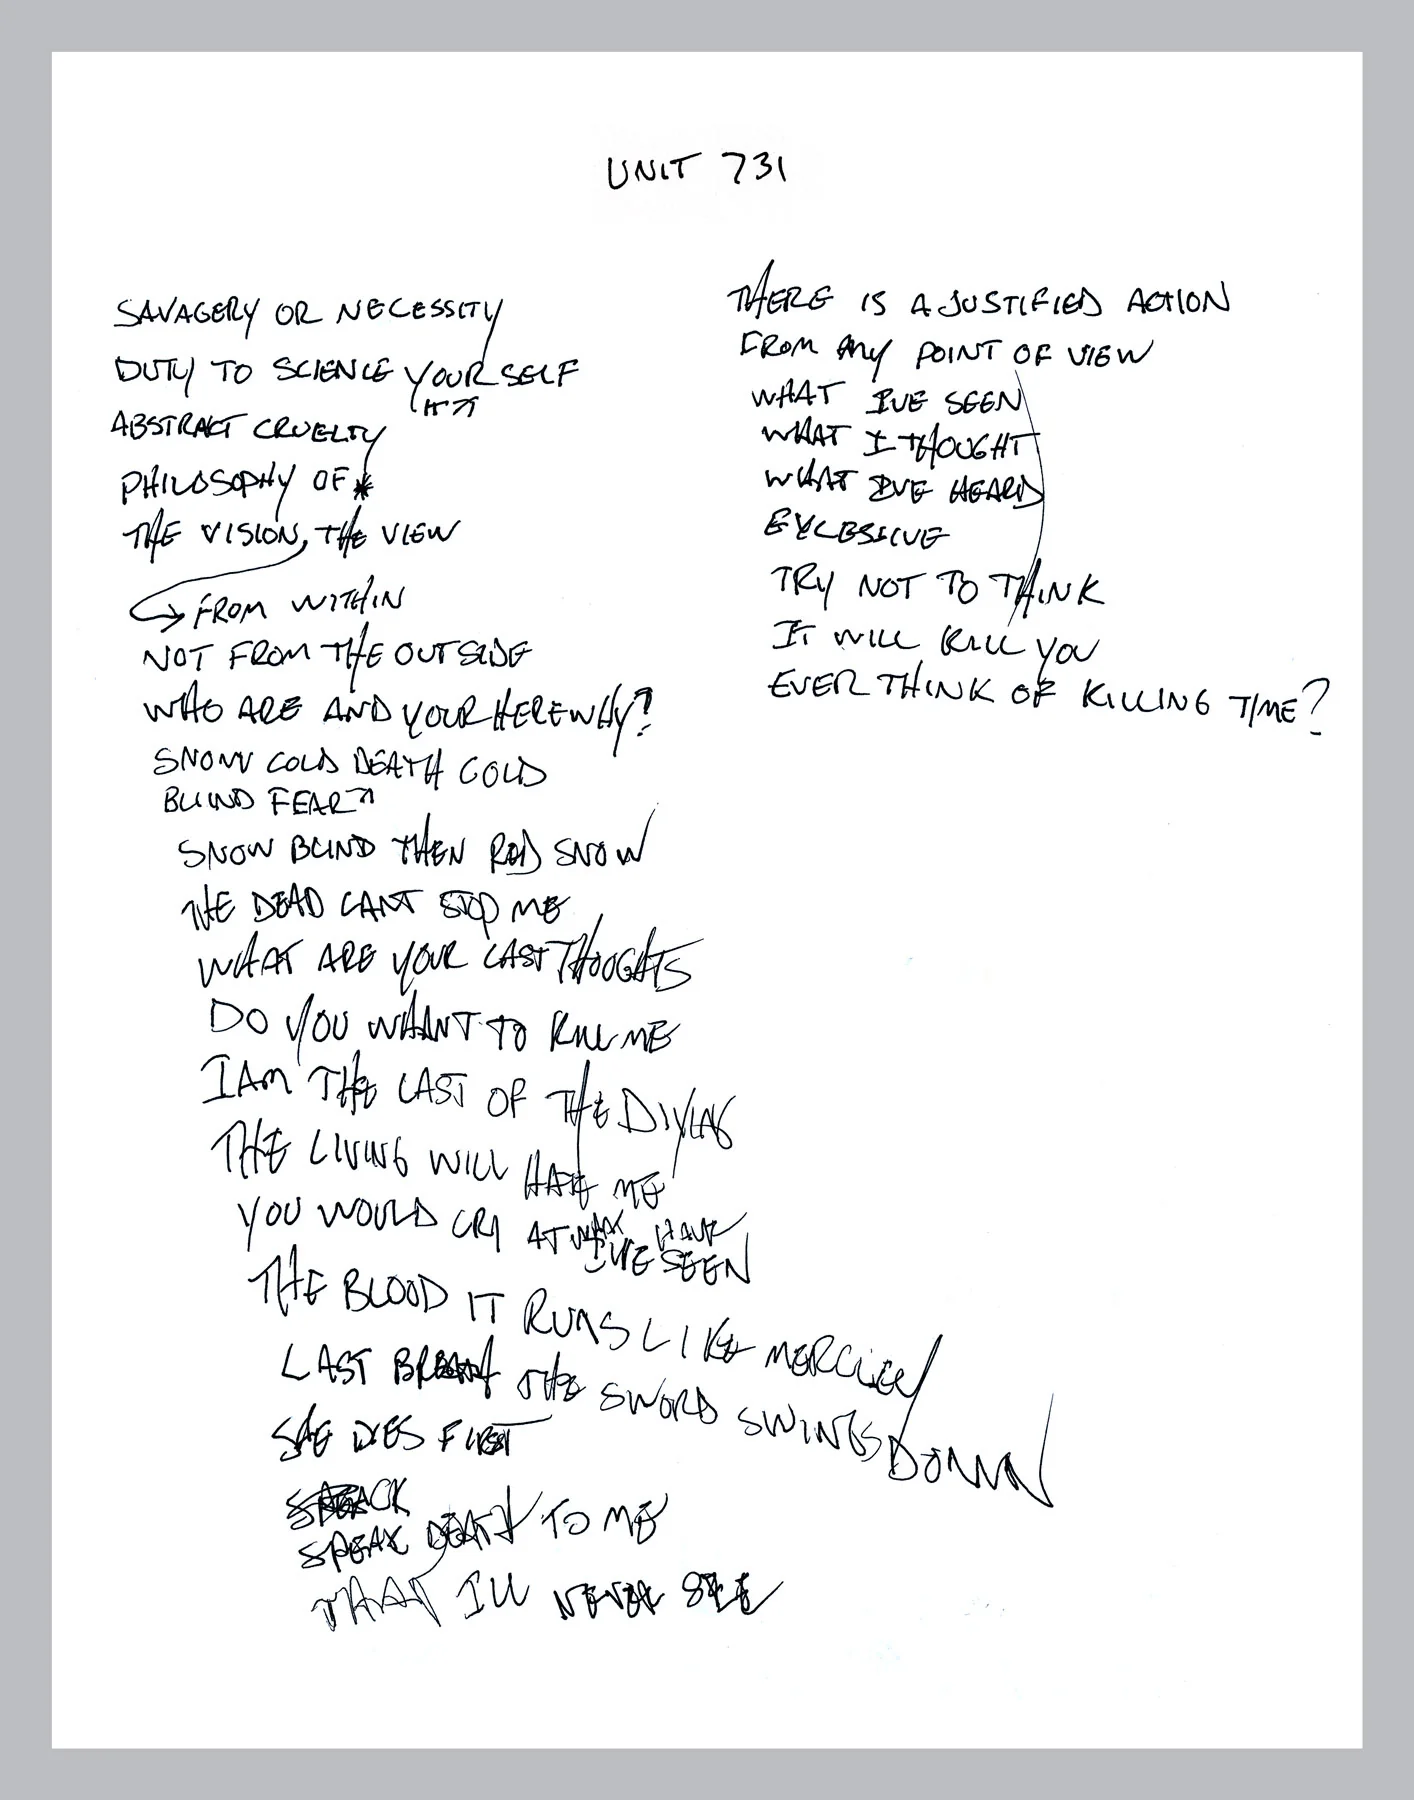 UNIT 731
SAVAGERY OR NECESSITY
DUTY TO SCIENCE YOURSELF
ABSTRACT CRUELTY
PHILOSOPHY OF *
THE VISION, THE VIEW
FROM WITHIN
NOT FROM THE OUTSIDE
WHO ARE AND YOUR HERE WHY?
SNOW COLD DEATH COLD
BLIND FEAR
SNOW BLIND THEN RED SNOW
THE DEAD CANT STOP ME
WHAT ARE YOUR LAST THOUGHTS
DO YOU WHANT TO KILL ME
I AM THE LAST OF THE DIYING
THE LIVING WILL HATE ME
YOU WOULD CRY AT HAVE
I'VE SEEN
THE BLOOD IT RUNS LIKE
LAST BREATH THE SWORD SWINGS DOWN
SHE DIES FIRST
SPEAK DEATH TO ME
THAT I'LL NEVER SEE
THERE IS A JUSTIFIED ACTION
FROM ANY POINT OF VIEW
WHAT I'VE SEEN
WHAT I THOUGHT
WHAT I'VE HEARD
EXCESSIVE
TRY NOT TO THINK
IT WILL KILL YOU
EVER THINK OF KILLING TIME?